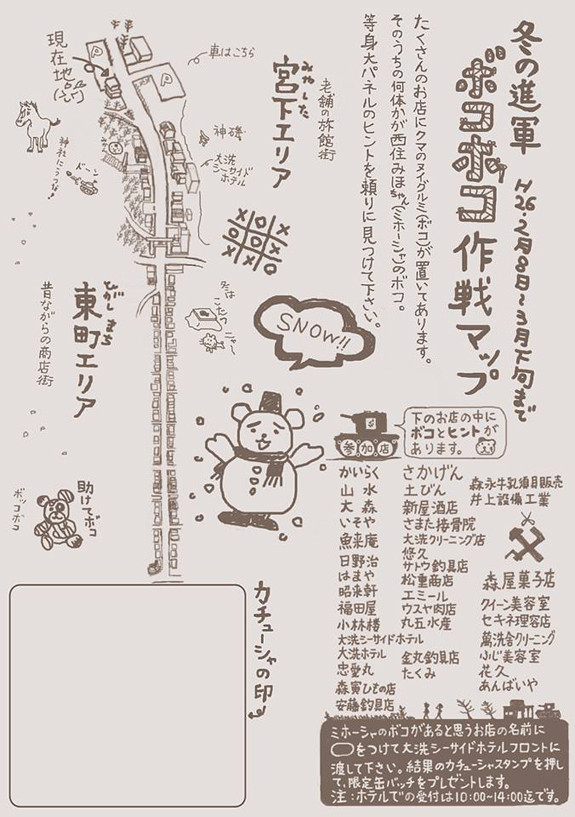 冬の進軍
ボコボコ作戦マップ
H26.2月8日〜3月下旬まで
たくさんのお店にクマのヌイグルミ(ボコ)が置いてあります。
そのうちの何体かが西住みほちゃん(ミホーシャ)のボコ。
等身大パネルのヒントを頼りに見つけて下さい。
老舗の旅館街
みやした
宮下エリア
車はこちら
P
P
現在地
神磯
大洗
シーサイド
ホテル
神社にうつる
ドーン
SNOW!!
冬は
こたつ
ニャー
ひがしまち
東町エリア
昔ながらの商店街
助けてボコ
ボッコボコ
下のお店の中に
ボコとヒントが
あります。
参加店
かいらく
山水
大森
いそや
魚来庵
日野治
はまや
昭来軒
福田屋
小林楼
大洗シーサイドホテル
大洗ホテル
忠愛丸
森寅ひもの店
安藤釣具店
さかげん
土びん
新屋酒店
さまた接骨院
大洗クリーニング店
悠久
サトウ釣具店
松重商店
エミール
ウスヤ肉店
丸五水産
金丸釣具店
たくみ
森永牛乳須貝販売
井上設備工業
森屋菓子店
クイーン美容室
セキネ理容店
萬洗舎クリーニング
ふじ美容室
花久
あんばいや
カチューシャの印
ミホーシャのボコがあると思うお店の名前に
◯をつけて大洗シーサイドホテルフロントに
渡して下さい。結果のカチューシャスタンプを押し
て、限定缶バッチをプレゼントします。
注:ホテルでの受付は10:00~14:00迄です。